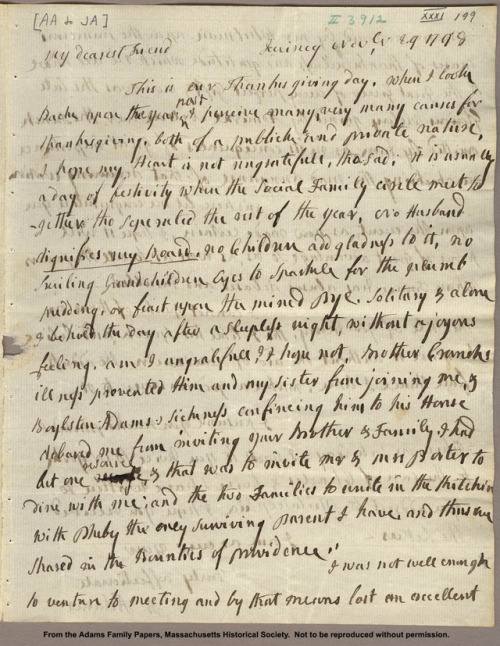 [AA to JA] II 3912 XXXI 199
My dearest Friend Quincy Novbr 29 1798
This is our Thanksgiving day. When I look
Back upon the year past, I perceive many, very many causes for
thanksgiving, both of a publick and private nature.
I hope my Heart is not ungratefull, tho sad; it is usually
a day of festivity when the Social Family circle meet to
-gether tho seperated the rest of the year. No Husband
dignifies my Board, no Children add gladness to it, no
Smiling Grandchildren Eyes to sparkle for the plumb
pudding, or feast upon the mined Pye. Solitary & alone
I behold the day after a sleepless night, without a joyous
feeling. am I ungratefull? I hope not. Brother Cranchs
illness prevented Him and my sister from joining me, &
Boylston Adams's sickness confineing him to his House
debared me from inviting your Brother & Family. I had
but one resource & that was to invite mr & mrs Porter to
dine with me; and the two Families to unite in the Kitchin
with Pheby the only surviving parent I have, and thus we
shared in the Bounties of providence"
I was not well enough
to venture to meeting and by that means lost an excellent
From the Adams Family Papers, Massachusetts Historical Society. Not to be reproduced without permission.